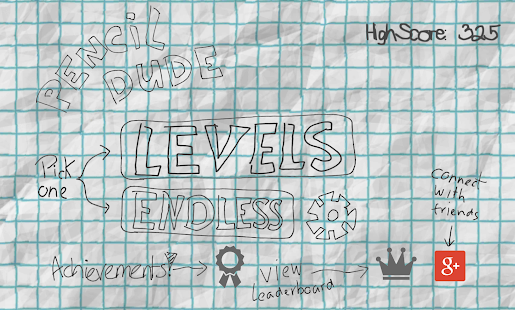 PENCIL
DUDE
HighScore: 325
LEVELS
Pick
one
ENDLESS
connect
with
friends
Achievements!
View
Leaderboard
g+